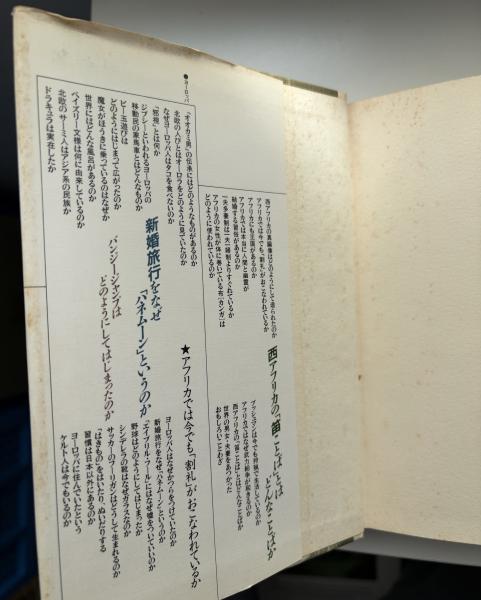 西アフリカの真鍮像はどのようにして造られたのか
アフリカでは今でも「割礼」がおこなわれているか
アフリカにも王国があるのか
アフリカでは本当に人間と幽霊が
結婚する習俗があるのか
一夫多妻制は一夫一婦制よりすぐれているか
アフリカの女性が体に巻いている布「カンガ」は
どのように使われているのか
西アフリカの「笛ことば」とは
どんなことばか
ブッシュマンは今でも狩猟で生活しているのか
アフリカではなぜ武力紛争が起きるのか
西アフリカの「笛ことば」とはどんなことばか
世界の男女・夫妻をあつかった
おもしろいことわざ
★アフリカでは今でも「割礼」がおこなわれているか
●ヨーロッパ
「オオカミ男」の伝承にはどのようなものがあるのか
北欧の人びとはオーロラをどのように見ていたのか
なぜヨーロッパ人はタコを食べないのか
「邪視」とは何か
ジプシーといわれるヨーロッパの
移動民の家馬車とはどんなものか
ビー玉遊びは
どのようにはじまって広がったのか
魔女がほうきに乗っているのはなぜか
世界にはどんな風呂があるのか
ペイズリー文様は何に由来しているのか
北欧のサーミ人はアジア系の民族か
ドラキュラは実在したか
新婚旅行をなぜ
「ハネムーン」というのか
バンジージャンプは
どのようにしてはじまったのか
ヨーロッパ人はなぜかつらをつけていたのか
新婚旅行をなぜ、「ハネムーン」というのか
「エイプリル・フール」にはなぜ嘘をついていいのか
野球はどのようにしてはじまったか
シンデレラの靴はなぜガラスなのか
サッカーのフーリガンはどうして生まれるのか
「はきもの」をはいたり、ぬいだりする
習慣は日本以外にあるのか
ヨーロッパに住んでいたという
ケルト人は今でもいるのか